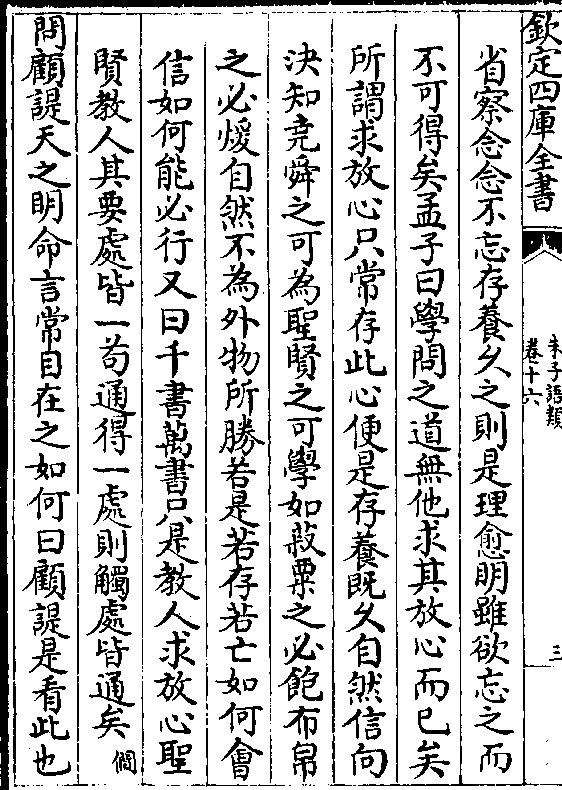 欽定四庫全書
朱子語類
卷十六
三
省察念念不忘存養久之則是理愈明雖欲忘之而
不可得矣孟子曰學問之道無他求其放心而已矣
所謂求放心只常存此心便是存養既久自然信向
決知堯舜之可為聖賢之可學如菽粟之必飽布帛
之必煖自然不為外物所勝若是若存若亡如何會
信如何能必行又曰千書萬書只是教人求放心聖
賢教人其要處皆一苟通得一處則觸處皆通矣僩
問顧諟天之明命言常目在之如何曰顧諟是看此也